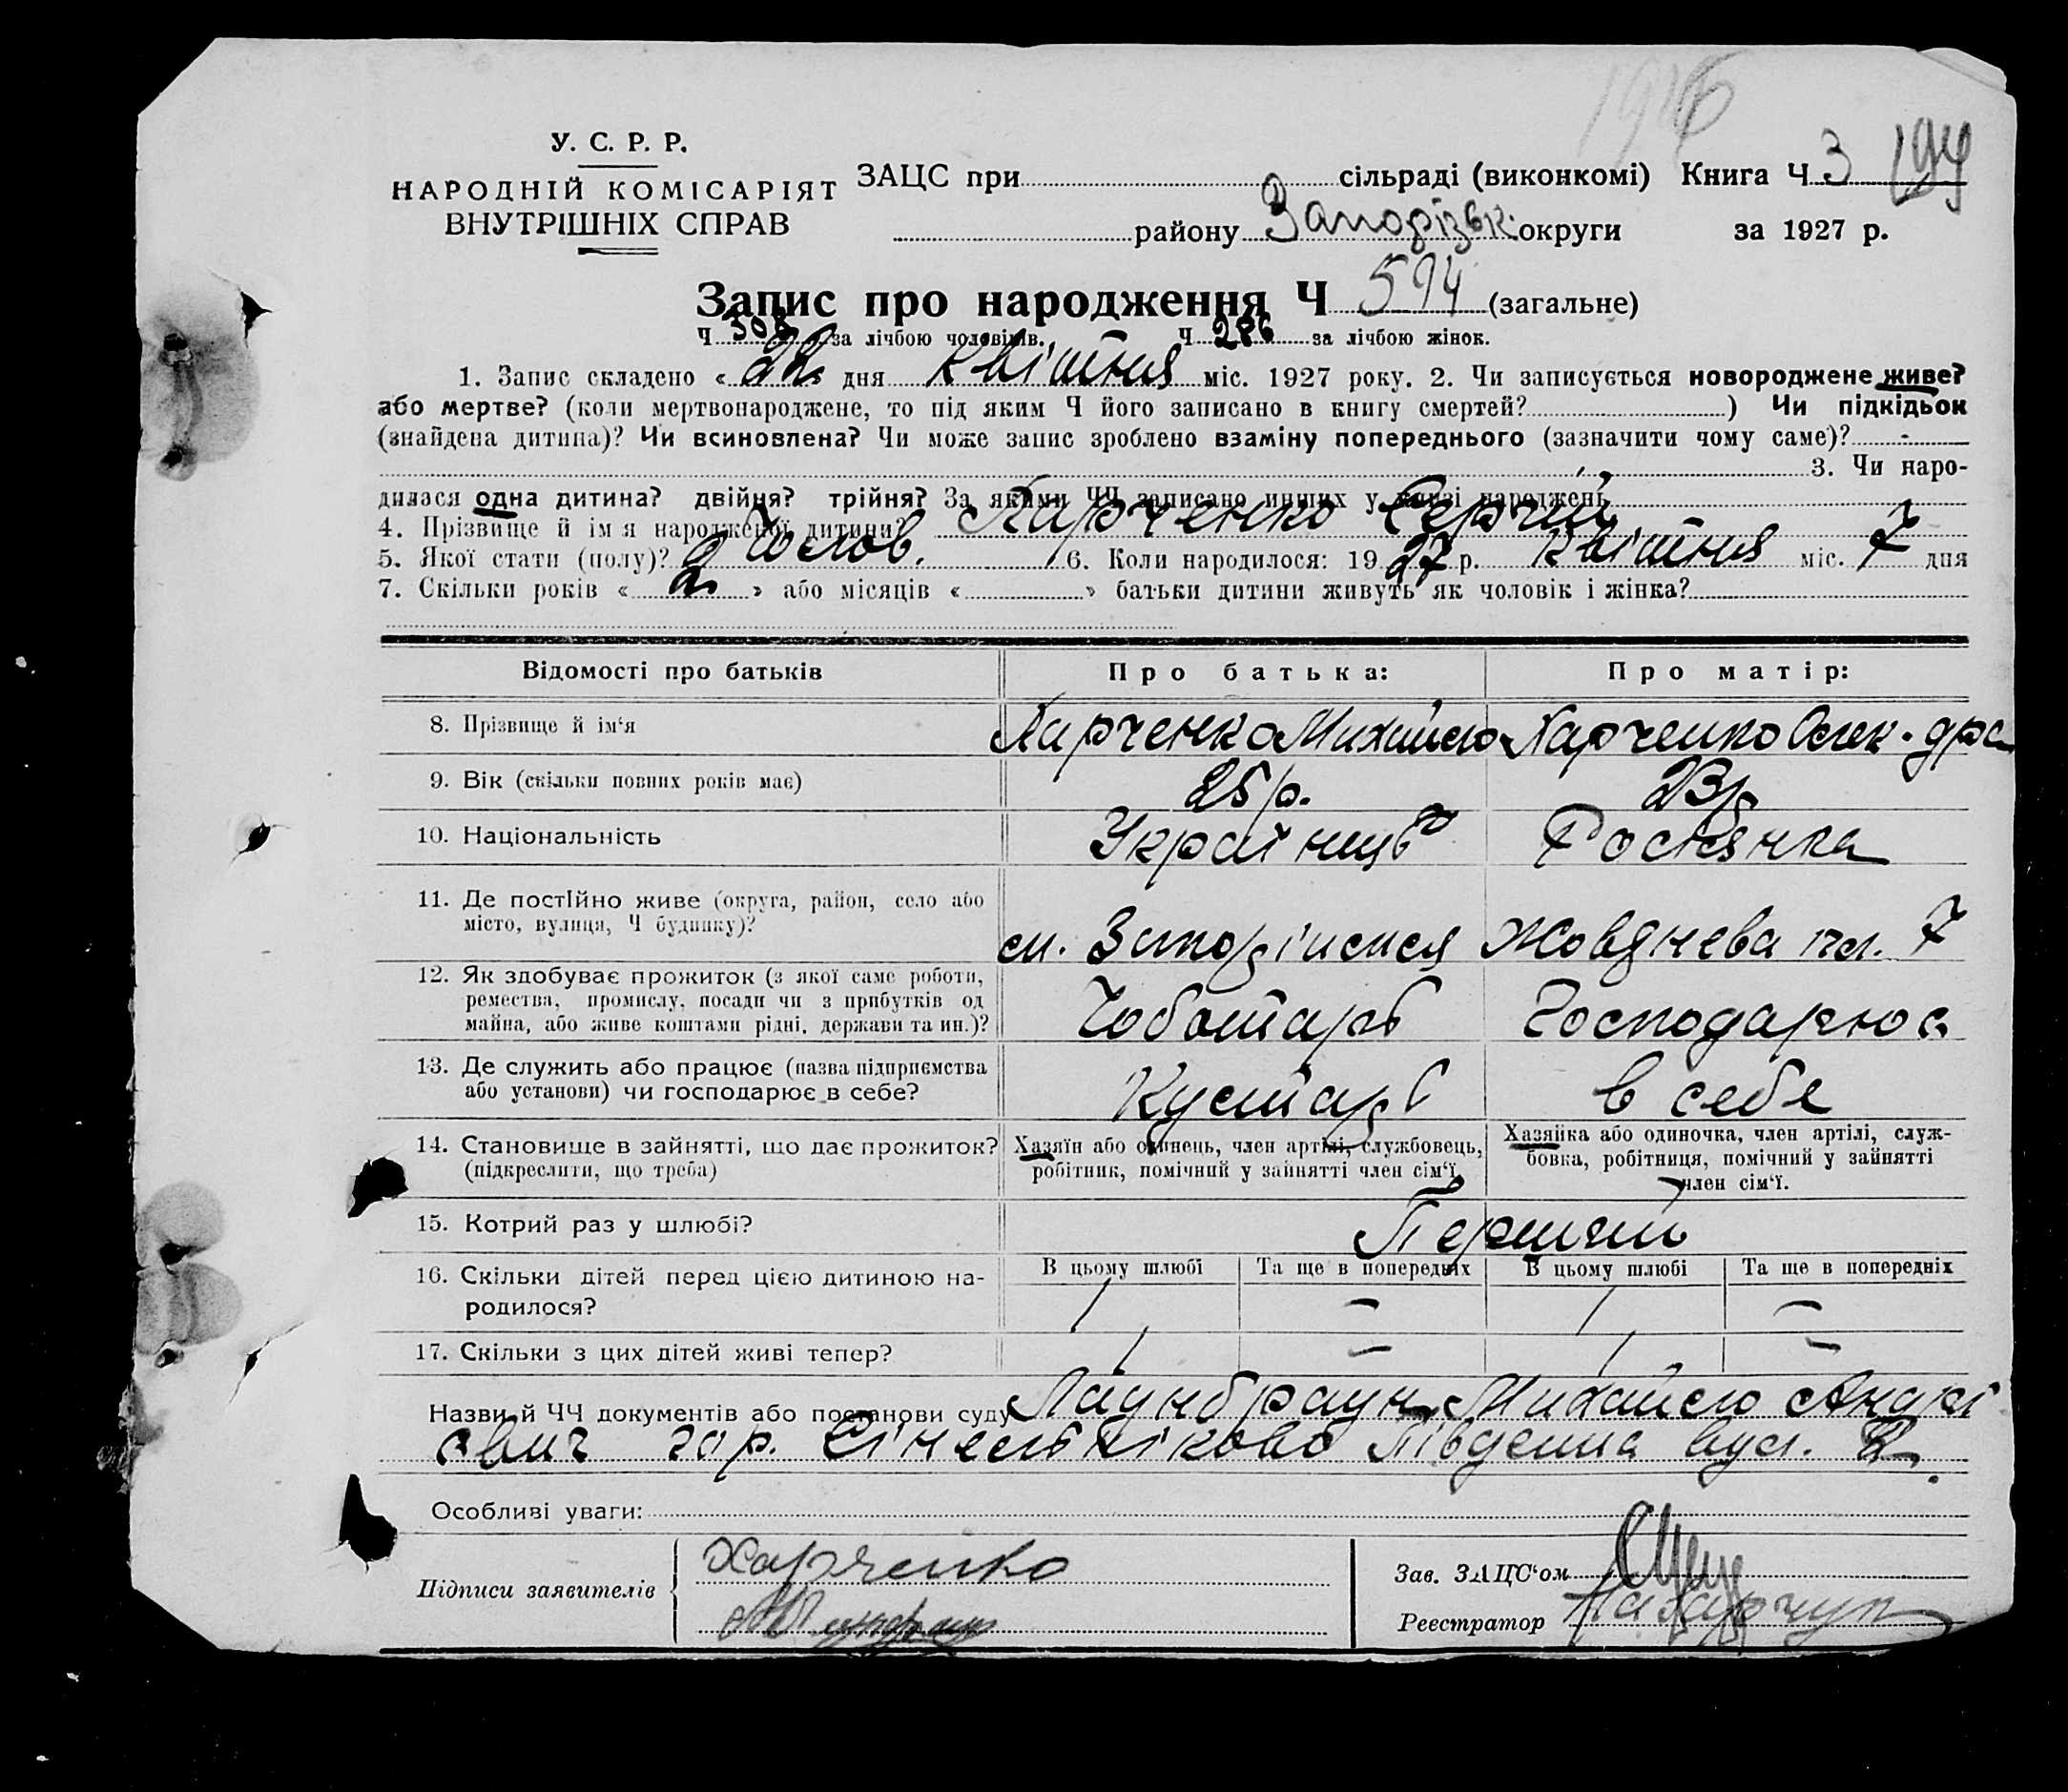 1926
У. С. Р. Р.
НАРОДНІЙ КОМІСАРІЯТ
ВНУТРІШНІХ СПРАВ
ЗАЦС при сільраді (виконкомі) Книга Ч 3 194
району Запорізьк. округи за 1927 р.
Запис про народження Ч 594 (загальне)
Ч 308 за лічбою чоловіків. Ч 286 за лічбою жінок.
1. Запис складено « 22 дня квітня міс. 1927 року. 2. Чи записується новороджене живе?
або мертве? (коли мертвонароджене, то під яким Ч його записано в книгу смертей? ) Чи підкідьок
(знайдена дитина)? Чи всиновлена? Чи може запис зроблено взаміну попереднього (зазначити чому саме)? -
3. Чи наро-
дилася одна дитина? двійня? трійня? За якими ЧЧ записано инших у книзі народжень
4. Прізвище й ім я народженої дитини? Харченко Сергій
5. Якої стати (полу)? 2 Чолов. 6. Коли народилося: 19 27 р. квітня міс. 7 дня
7. Скільки років « 2 » або місяців « » батьки дитини живуть як чоловік і жінка?
Відомості про батьків Про батька: Про матір:
8. Прізвище й ім‘я Харченко Михайло Харченко Олек-дра
9. Вік (скільки повних років має) 25 р. 23 р.
10. Національність Українець Росіянка
11. Де постійно живе (округа, район, село або
місто, вулиця, Ч будинку)? м. Запоріжжя Жовднева пл. 7
12. Як здобуває прожиток (з якої саме роботи,
ремества, промислу, посади чи з прибутків од
майна, або живе коштами рідні, держави та ин.)? Чоботарь Господарює
13. Де служить або працює (назва підприємства
або установи) чи господарює в себе? Кустарь в себе
14. Становище в зайнятті, що дає прожиток?
(підкреслити, що треба)
Хазяїн або одинець, член артілі, службовець,
робітник, помічний у зайнятті член сім‘ї
Хазяйка або одиночка, член артілі, служ-
бовка, робітниця, помічний у зайнятті
член сім‘ї.
15. Котрий раз у шлюбі? Перший
В цьому шлюбі Та ще в попередніх В цьому шлюбі Та ще в попередніх
16. Скільки дітей перед цією дитиною на-
родилося? 1 — 1 —
17. Скільки з цих дітей живі тепер? 1 — 1 —
Назви й ЧЧ документів або постанови суду Михайло Андрі
євич гор. Південна вул.
Особливі уваги:
Підписи заявителів Харченко
Зав. ЗАЦС‘ом
Реєстратор